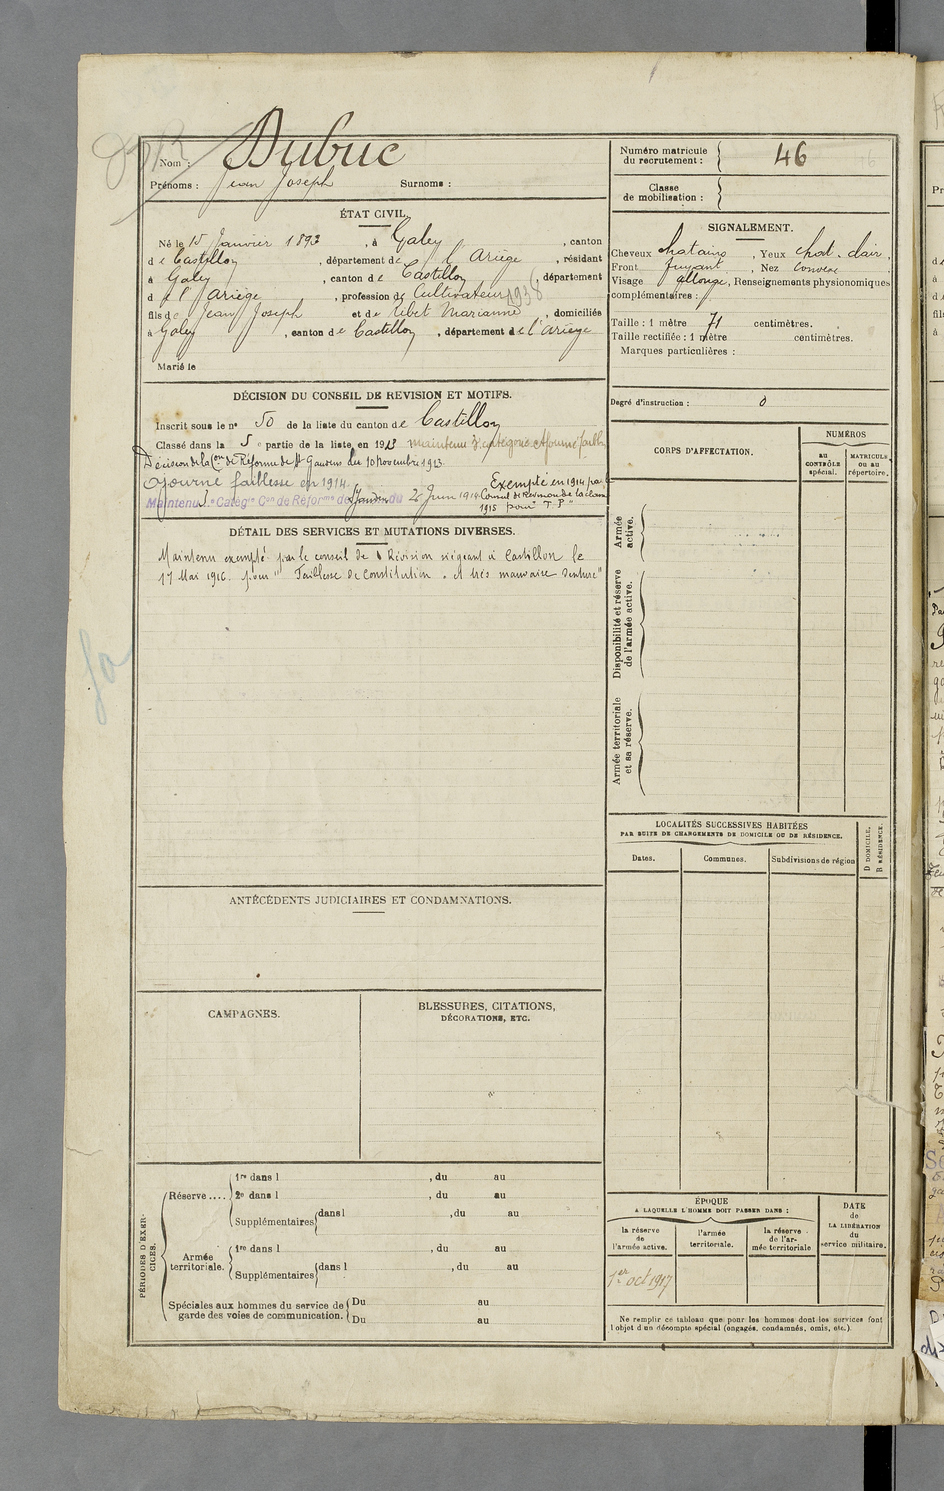 Nom : Dubuc
Prénoms : Jean Joseph Surnoms :
Numéro matricule
du recrutement : 46
Classe
de mobilisation :
ÉTAT CIVIL.
Né le 15 Janvier 1893, à Galey, canton
de Castillon, département de l'Ariège, résidant
à Galey, canton de Castillon, département
de l'Ariège, profession de Cultivateur 1938
fils de Jean Joseph et de Ribet Marianne, domiciliés
à Galey, canton de Castillon, département de l'Ariège
Marié le
SIGNALEMENT.
Cheveux chatains, Yeux chat. clair,
Front fuyant, Nez Convexe
Visage allongé, Renseignements physionomiques
complémentaires :
Taille : 1 mètre 71 centimètres.
Taille rectifiée : 1 mètre centimètres.
Marques particulières :
Degré d'instruction : 0
DÉCISION DU CONSEIL DE REVISION ET MOTIFS.
Inscrit sous le no 50 de la liste du canton de Castillon
Classé dans la 5e partie de la liste en 1913
Décision de la Con de Réforme de St Gaudens du 10 Novembre 1913.
Ajourné faiblesse en 1914. Exempté en 1914 par
Maintenu Catégie Con de Réforme de St Gaudens du 20 Juin 1914 Conseil de Revision de la classe
1915 pour
DÉTAIL DES SERVICES ET MUTATIONS DIVERSES.
Maintenu exempté par le conseil de Révision siégeant à Castillon le
17 Mai 1916. pour "Faiblesse de Constitution. et très mauvaise denture"
CORPS D'AFFECTATION.
NUMÉROS
AU
CONTRÔLE
spécial.
MATRICULE
ou au
répertoire.
Armée
active.
Disponibilité et réserve
de l'armée active.
Armée territoriale
et sa réserve.
LOCALITÉS SUCCESSIVES HABITÉES
PAR SUITE DE CHANGEMENTS DE DOMICILE OU DE RÉSIDENCE.
Dates.
Communes.
Subdivisions de région
D DOMICILE.
R RÉSIDENCE
ANTÉCÉDENTS JUDICIAIRES ET CONDAMNATIONS.
CAMPAGNES.
BLESSURES, CITATIONS,
DÉCORATIONS, ETC.
PÉRIODES D'EXER-
CICES.
Réserve ....
1re dans l , du au
2e dans l , du au
Supplémentaires dans l , du au
Armée
territoriale.
1re dans l , du au
Supplémentaires dans l , du au
Spéciales aux hommes du service de
garde des voies de communication.
Du au
Du au
ÉPOQUE
A LAQUELLE L'HOMME DOIT PASSER DANS :
la réserve
de
l'armée active.
l'armée
territoriale.
la réserve
de l'ar-
mée territoriale
DATE
de
LA LIBÉRATION
du
service militaire.
1er oct 1917
Ne remplir ce tableau que pour les hommes dont les services font
l'objet d'un décompte spécial (engagés, condamnés, omis, etc.).